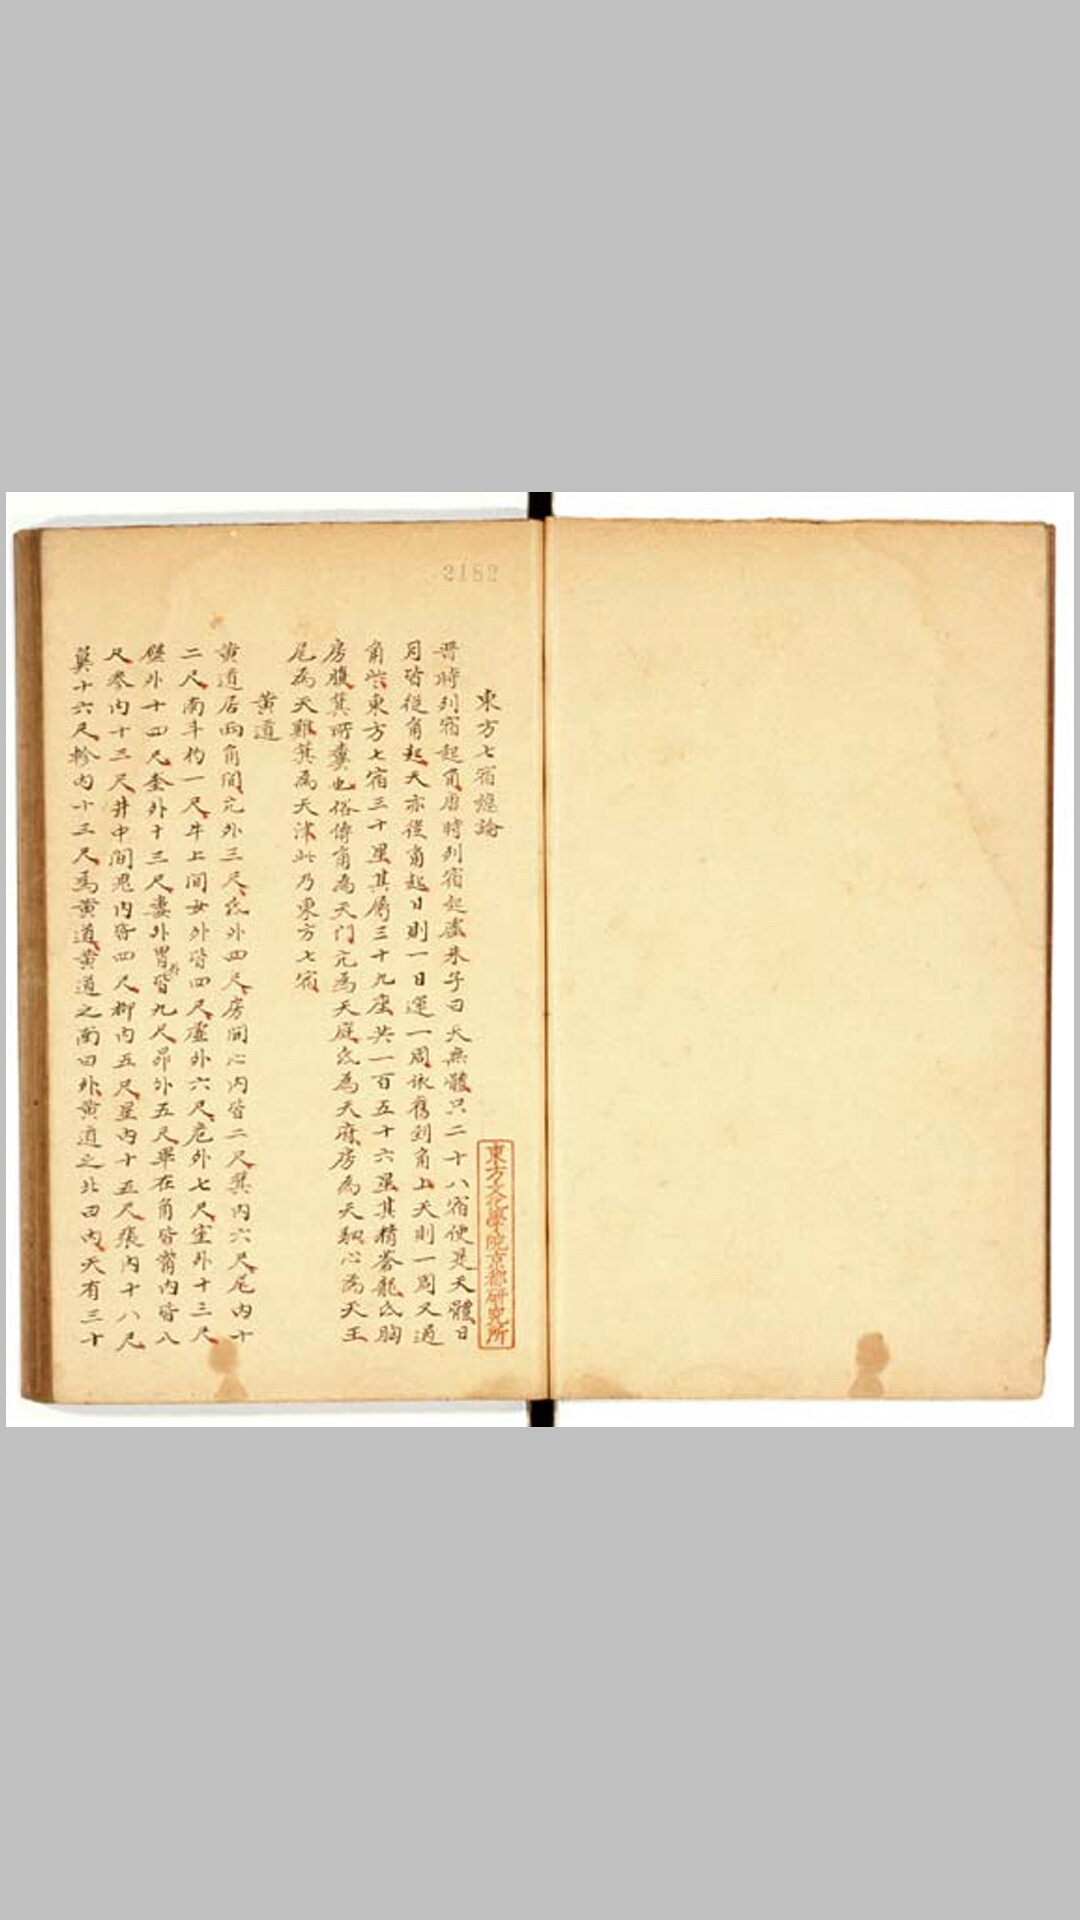 2182
東方七宿總論
晋時列宿起角唐時列宿起虛朱子曰天無體只二十八宿便是天體日
月皆從角起天亦從角起日則一日運一周依舊到角上天則一周又過
角些東方七宿三十星其屬三十九座共一百五十六星其精蒼龍氐胸
房腹箕所糞也俗傳角為天门亢為天庭氐為天府房為天駟心為天王
尾為天雞箕為天津此乃東方七宿
黄道
黄道居兩角間亢外三尺氐外四尺房間心内皆二尺箕内六尺尾内十
二尺南斗杓一尺牛上間女外皆四尺虛外六尺危外七尺室外十三尺
壁外十四尺奎外十三尺婁外胃皆九尺昴外五尺畢在角皆觜内皆八
尺參内十三尺井中間鬼内皆四尺柳内五尺星内十五尺張内十八尺
翼十六尺軫内十三尺爲黄道黄道之南曰外黄道之北曰内天有三十
東方文化學院京都研究所